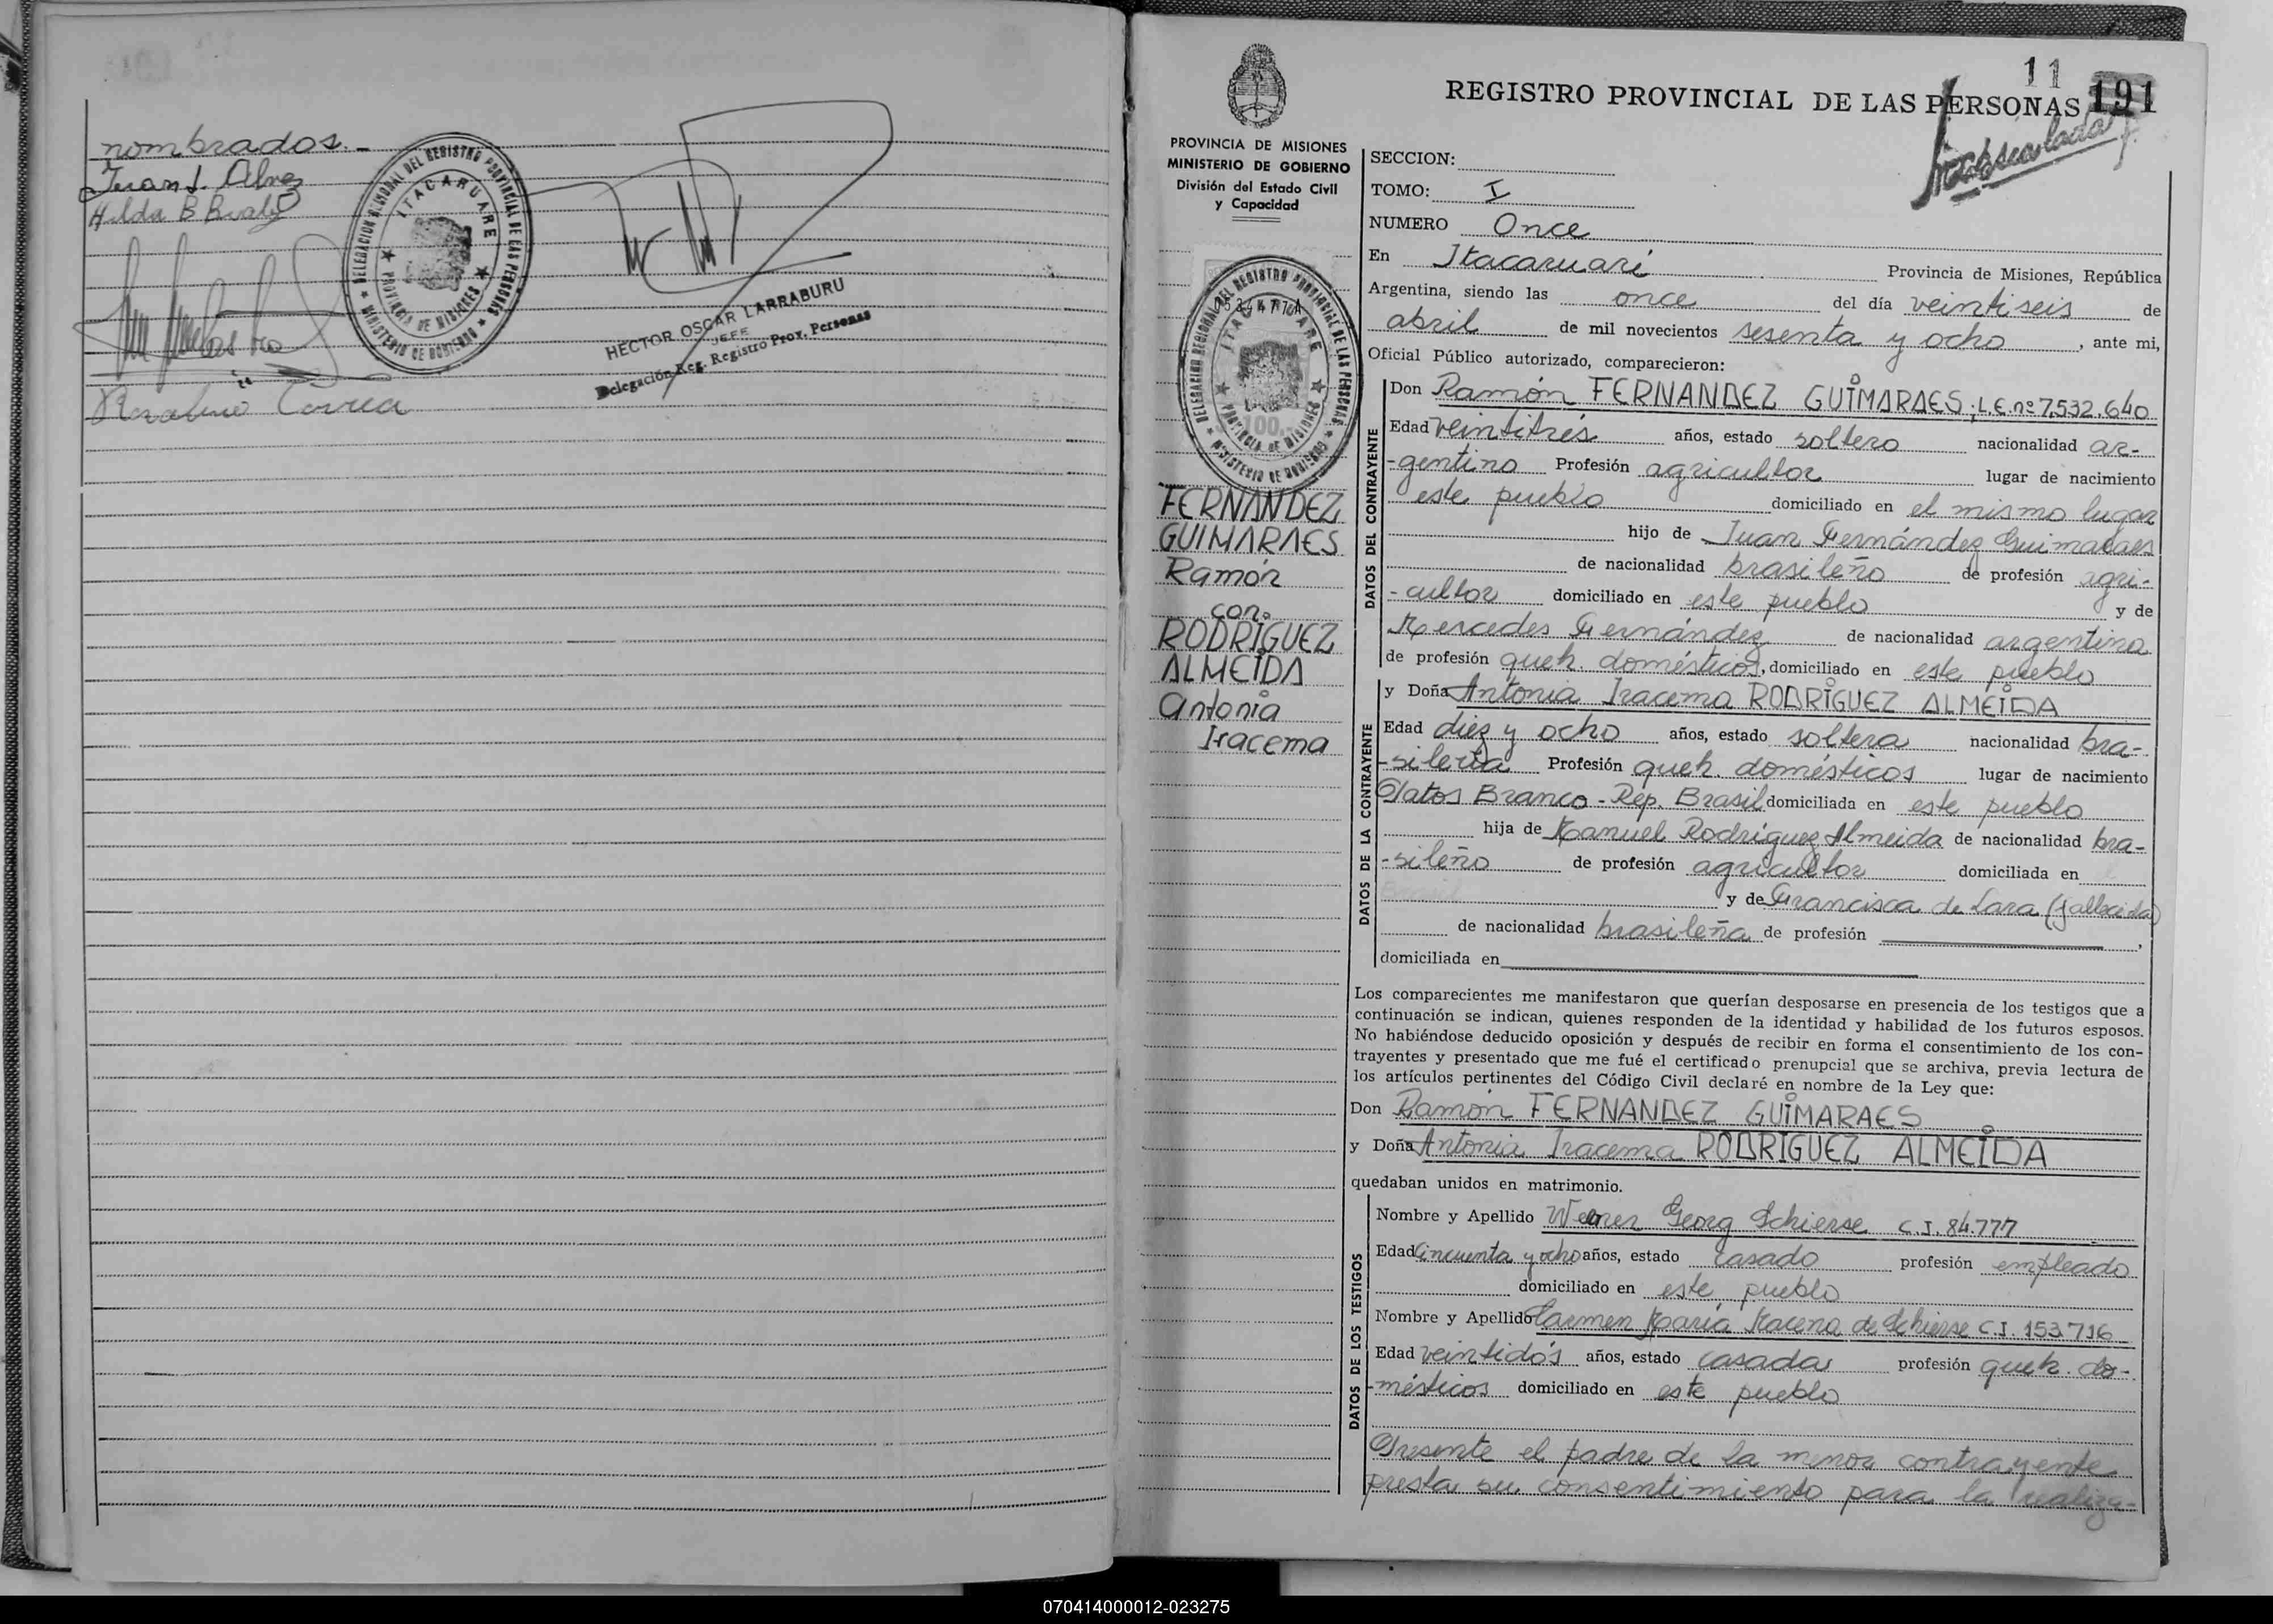 nombrados.-
Juan J. Alvez
Hilda B
DELEGACION REGIONAL DEL REGISTRO PROVINCIAL DE LAS PERSONAS
ITACARUARE
PROVINCIA DE MISIONES
MINISTERIO DE GOBIERNO
HECTOR OSCAR LARRABURU
JEFE
Delegación Reg. Registro Prov. Personas
Correa
11
REGISTRO PROVINCIAL DE LAS PERSONAS 191
PROVINCIA DE MISIONES
MINISTERIO DE GOBIERNO
División del Estado Civil
y Capacidad
DELEGACION REGIONAL DEL REGISTRO PROVINCIAL DE LAS PERSONAS
ITACARUARE
PROVINCIA DE MISIONES
MINISTERIO DE GOBIERNO
100
FERNANDEZ
GUIMARAES
Ramón
con
RODRIGUEZ
ALMEIDA
Antonia
Iracema
SECCION:
TOMO: I
NUMERO Once
En Itacaruaré Provincia de Misiones, República
Argentina, siendo las once del día veintiseis de
abril de mil novecientos sesenta y ocho, ante mi,
Oficial Público autorizado, comparecieron:
DATOS DEL CONTRAYENTE
Don Ramón FERNANDEZ GUIMARAES; L.E. nº 7.532.640
Edad veintitrés años, estado soltero nacionalidad ar-
-gentino Profesión agricultor lugar de nacimiento
este pueblo domiciliado en el mismo lugar
hijo de Juan Fernández Guimaraes
de nacionalidad brasileño de profesión agri-
-cultor domiciliado en este pueblo y de
Mercedes Fernández de nacionalidad argentina
de profesión queh. domésticos, domiciliado en este pueblo
DATOS DE LA CONTRAYENTE
y Doña Antonia Iracema RODRIGUEZ ALMEIDA
Edad diez y ocho años, estado soltera nacionalidad bra-
-sileña Profesión queh. domésticos lugar de nacimiento
Patos Branco - Rep. Brasil domiciliada en este pueblo
hija de Manuel Rodriguez Almeida de nacionalidad bra-
-sileño de profesión agricultor domiciliada en
y de Francisca de Lara (fallecida)
de nacionalidad brasileña de profesión
domiciliada en
Los comparecientes me manifestaron que querían desposarse en presencia de los testigos que a
continuación se indican, quienes responden de la identidad y habilidad de los futuros esposos.
No habiéndose deducido oposición y después de recibir en forma el consentimiento de los con-
trayentes y presentado que me fué el certificado prenupcial que se archiva, previa lectura de
los artículos pertinentes del Código Civil declaré en nombre de la Ley que:
Don Ramón FERNANDEZ GUIMARAES
y Doña Antonia Iracema RODRIGUEZ ALMEIDA
quedaban unidos en matrimonio.
DATOS DE LOS TESTIGOS
Nombre y Apellido Werner Georg Schierse C.I. 84.777
Edad Cincuenta y ocho años, estado casado profesión empleado
domiciliado en este pueblo
Nombre y Apellido Carmen María de Schierse C.I. 153.716
Edad veintidós años, estado casada profesión queh. do-
-mésticos domiciliado en este pueblo
Presente el padre de la menor contrayente
presta su consentimiento para la realiza-
070414000012-023275